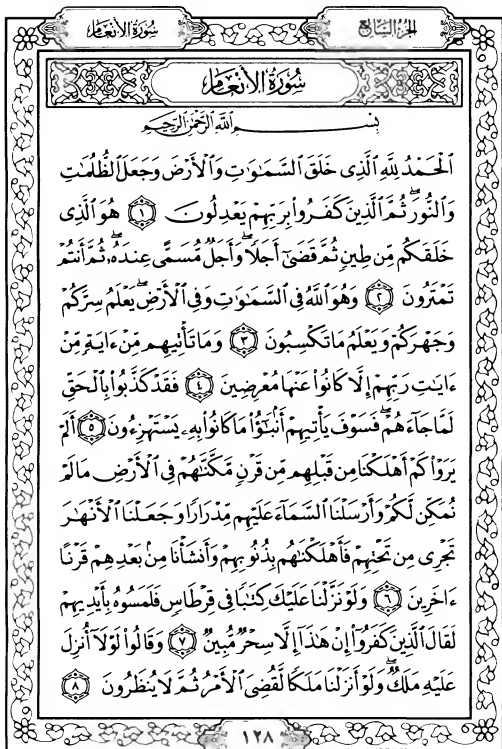 الجزء السابع
سورة الأنعام
سُورَةُ الأَنْعَامِ
بِسْمِ اللَّهِ الرَّحْمَٰنِ الرَّحِيمِ
الْحَمْدُ لِلَّهِ الَّذِى خَلَقَ السَّمَٰوَٰتِ وَالْأَرْضَ وَجَعَلَ الظُّلُمَٰتِ
وَالنُّورَ ۖ ثُمَّ الَّذِينَ كَفَرُوا۟ بِرَبِّهِمْ يَعْدِلُونَ ١ هُوَ الَّذِى
خَلَقَكُم مِّن طِينٍ ثُمَّ قَضَىٰٓ أَجَلًا ۖ وَأَجَلٌ مُّسَمًّى عِندَهُۥ ۖ ثُمَّ أَنتُمْ
تَمْتَرُونَ ٢ وَهُوَ اللَّهُ فِى السَّمَٰوَٰتِ وَفِى الْأَرْضِ ۖ يَعْلَمُ سِرَّكُمْ
وَجَهْرَكُمْ وَيَعْلَمُ مَا تَكْسِبُونَ ٣ وَمَا تَأْتِيهِم مِّنْ ءَايَةٍ مِّنْ
ءَايَٰتِ رَبِّهِمْ إِلَّا كَانُوا۟ عَنْهَا مُعْرِضِينَ ٤ فَقَدْ كَذَّبُوا۟ بِالْحَقِّ
لَمَّا جَآءَهُمْ ۖ فَسَوْفَ يَأْتِيهِمْ أَنۢبَٰٓؤُا۟ مَا كَانُوا۟ بِهِۦ يَسْتَهْزِءُونَ ٥ أَلَمْ
يَرَوْا۟ كَمْ أَهْلَكْنَا مِن قَبْلِهِم مِّن قَرْنٍ مَّكَّنَّٰهُمْ فِى الْأَرْضِ مَا لَمْ
نُمَكِّن لَّكُمْ وَأَرْسَلْنَا السَّمَآءَ عَلَيْهِم مِّدْرَارًا وَجَعَلْنَا الْأَنْهَٰرَ
تَجْرِى مِن تَحْتِهِمْ فَأَهْلَكْنَٰهُم بِذُنُوبِهِمْ وَأَنشَأْنَا مِنۢ بَعْدِهِمْ قَرْنًا
ءَاخَرِينَ ٦ وَلَوْ نَزَّلْنَا عَلَيْكَ كِتَٰبًا فِى قِرْطَاسٍ فَلَمَسُوهُ بِأَيْدِيهِمْ
لَقَالَ الَّذِينَ كَفَرُوٓا۟ إِنْ هَٰذَآ إِلَّا سِحْرٌ مُّبِينٌ ٧ وَقَالُوا۟ لَوْلَآ أُنزِلَ
عَلَيْهِ مَلَكٌ ۖ وَلَوْ أَنزَلْنَا مَلَكًا لَّقُضِىَ الْأَمْرُ ثُمَّ لَا يُنظَرُونَ ٨
١٢٨